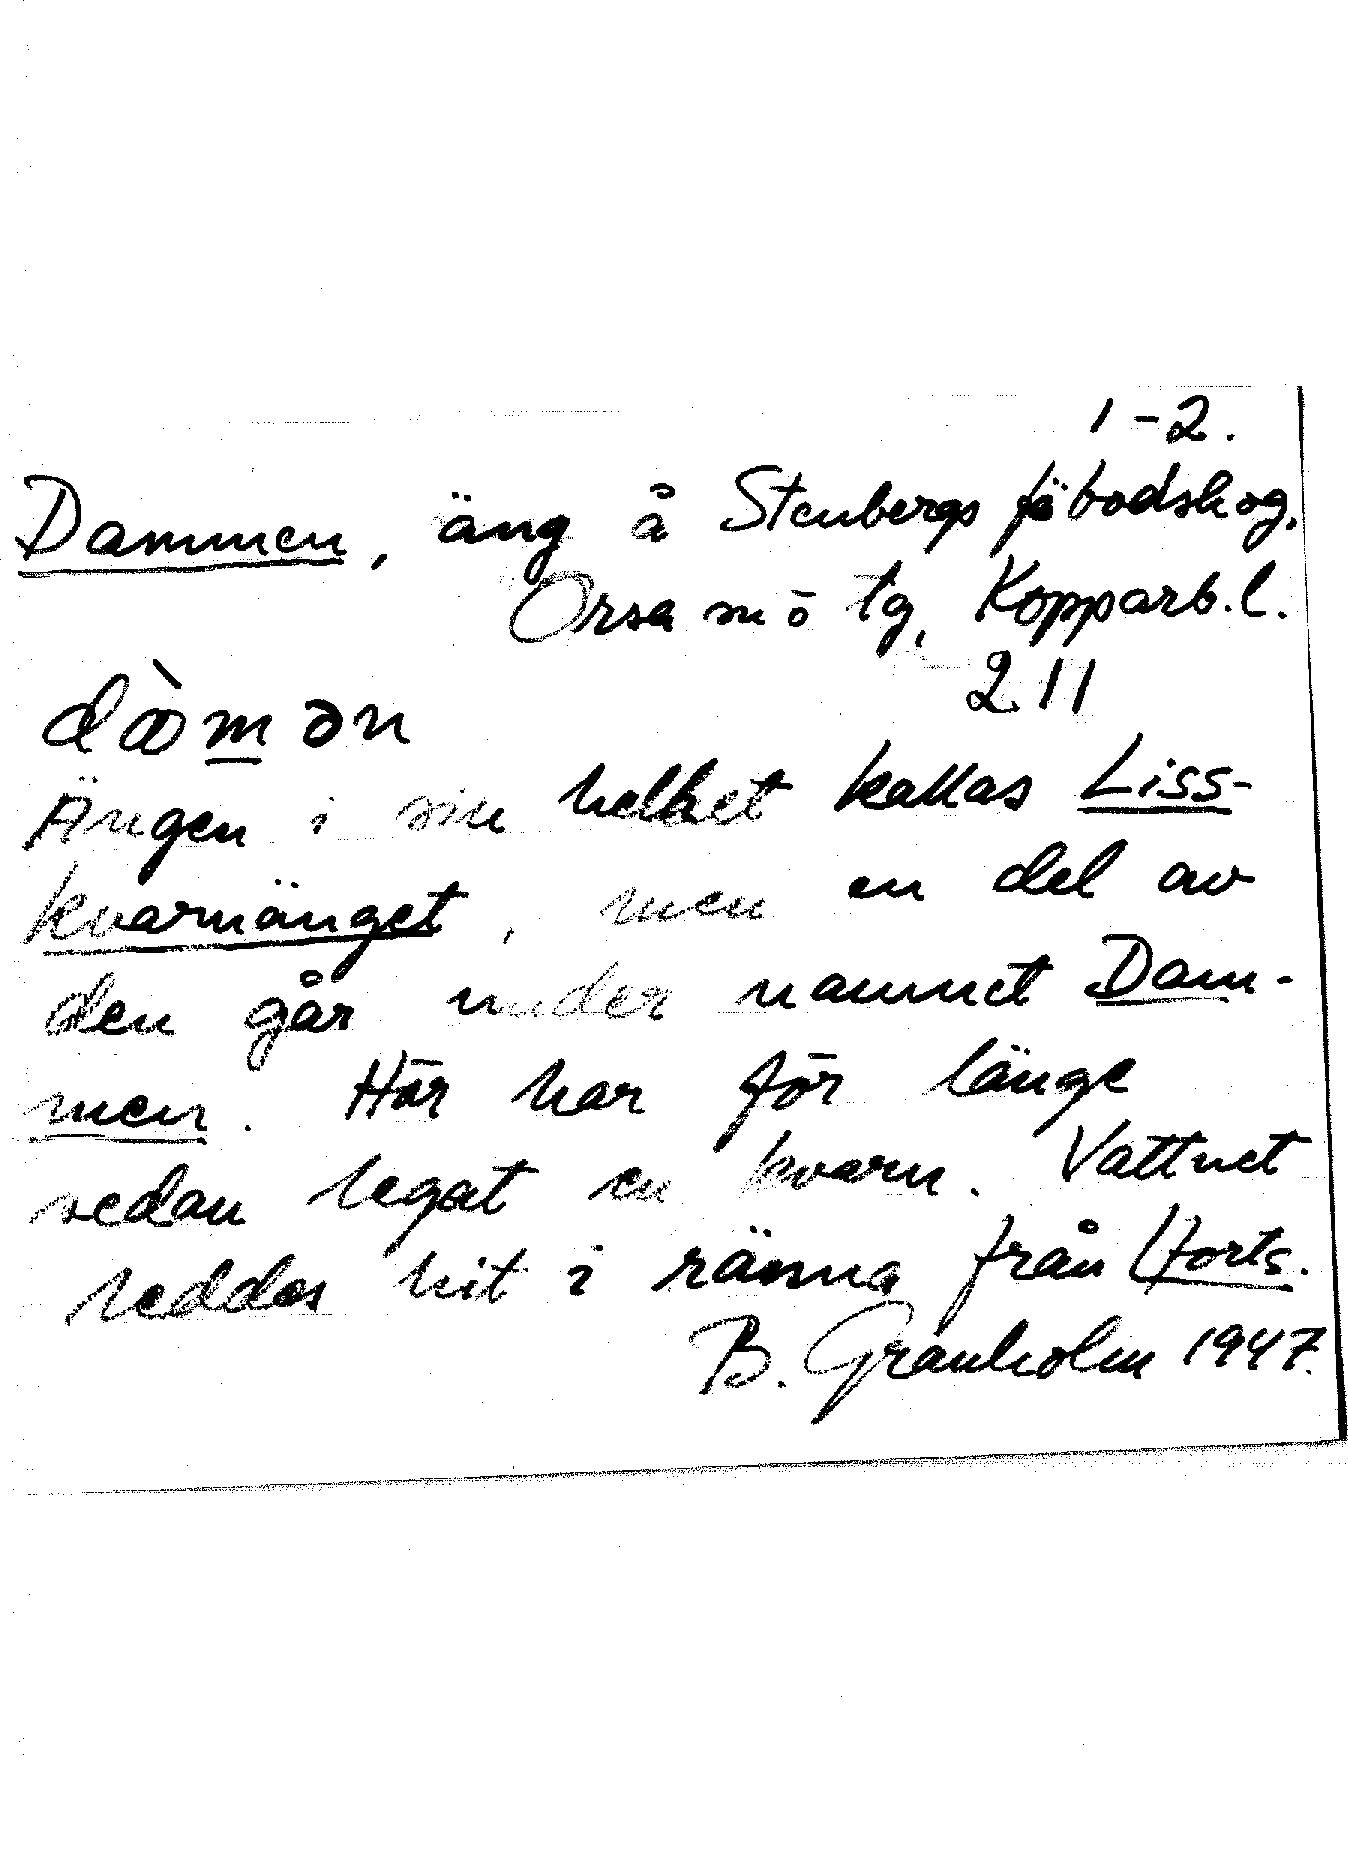 1-2.
Dammen, äng å Stenbergs fäbodskog,
Orsa snö tg, Kopparb. l.
211
Ängen i sin helhet kallas Liss-
kvarnänget, men en del av
den går under namnet Dam-
men. Här har för länge
sedan legat en kvarn. Vattnet
leddes hit i ränna från Forts.
B. Granholm 1947.